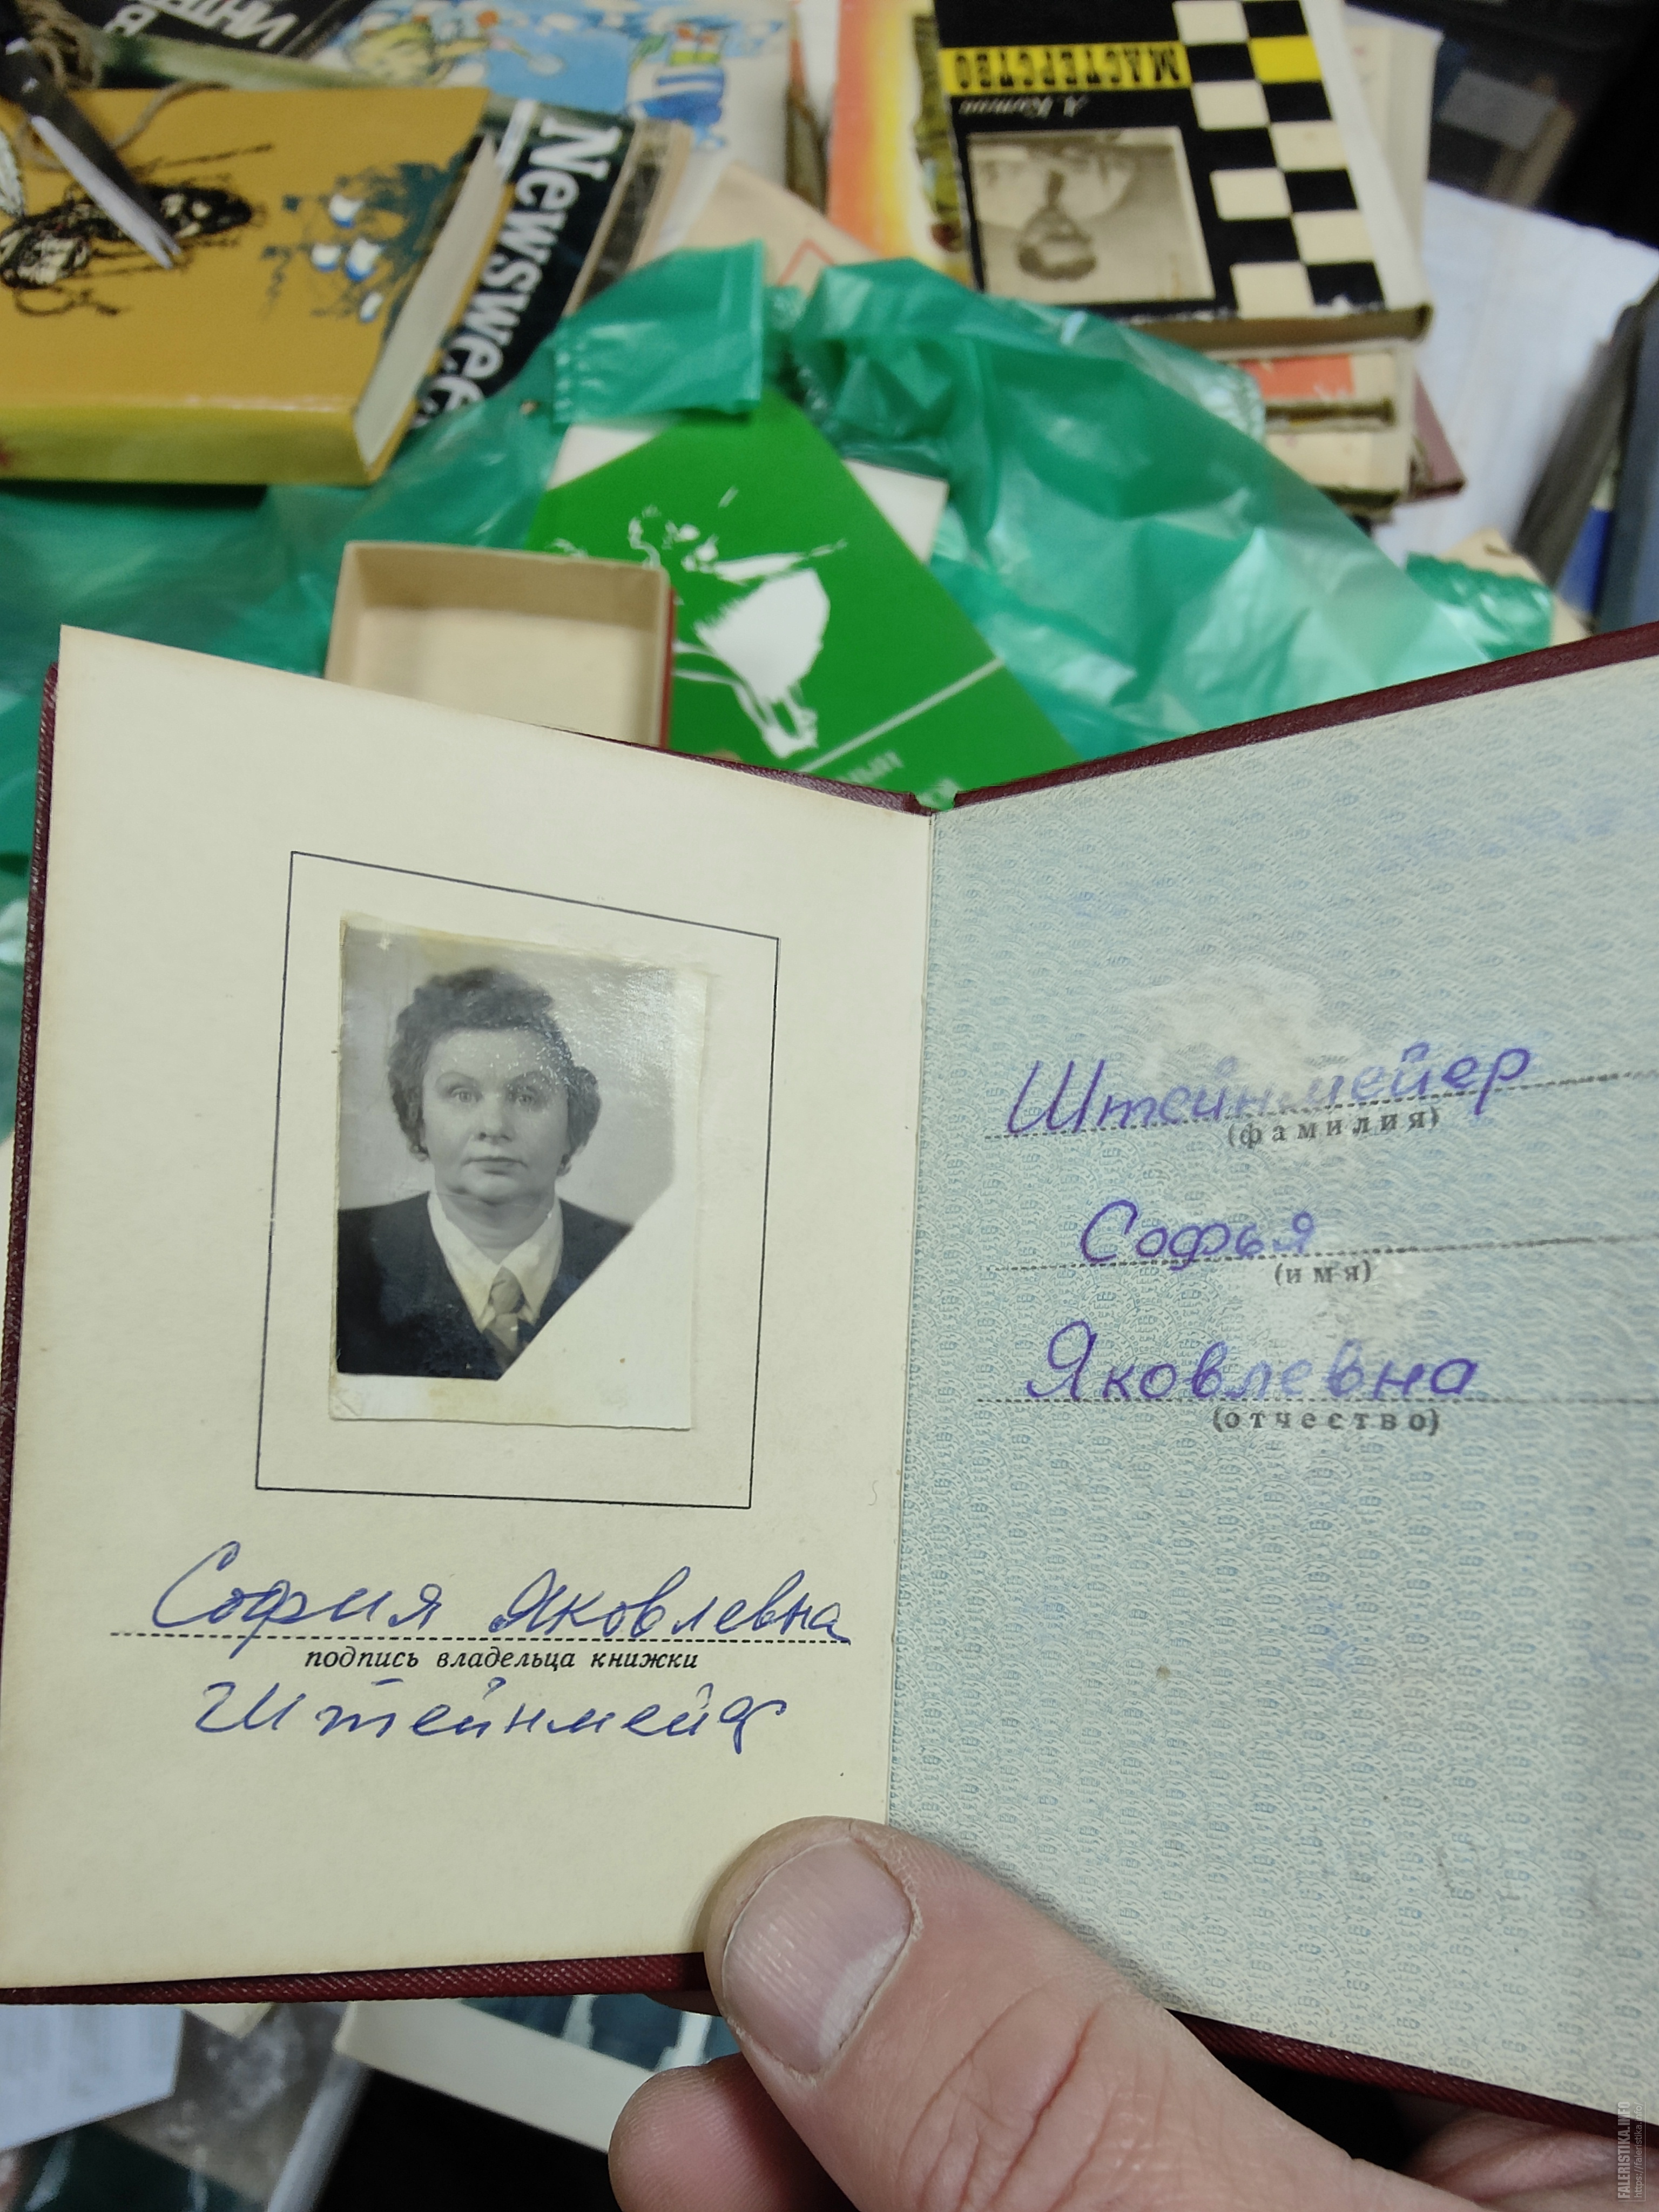 Newswee
МАСТЕРСТВО
Штейнмейер
(фамилия)
Софья
(имя)
Яковлевна
(отчество)
София Яковлевна
подпись владельца книжки
Штейнмейер
FALERISTIKA.INFO
https://faleristika.info/